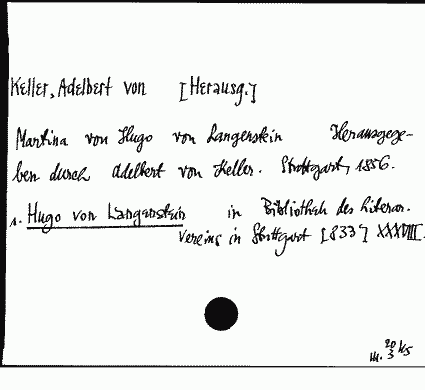 Keller, Adelbert von [Herausg.]
Martina von Hugo von Langenstein Herausgege-
ben durch Adelbert von Keller. Stuttgart, 1856.
s. Hugo von Langenstein in Bibliothek des Literar.
Vereins in Stuttgart [833] XXXVIII.
20
3